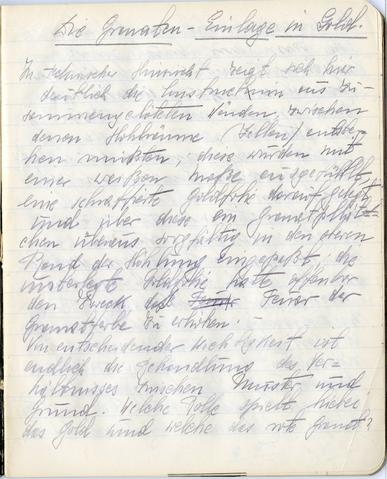 Die Granaten-Einlage in Gold.
In technischer Hinsicht zeigt sich hier
deutlich die Construction aus zu-
sammengelöteten Wänden, zwischen
denen Hohlräume (Zellen) entste-
hen mußten, diese wurden mit
einer weißen Maße ausgefüllt
eine schraffierte Goldfolie darauf gelegt
und über diese ein Granatplätt-
chen überaus sorgfältig in den oberen
Rand der Höhlung eingepaßt, die
unterlegte Goldfolie hatte offenbar
den Zweck das Feuer der
Granatfarbe zu erhöhen.
Von entscheidender Wichtigkeit ist
endlich die Behandlung des Ver-
hältnisses zwischen Muster und
Grund. Welche Rolle spielt hiebei
das Gold und welche das rote Granat?